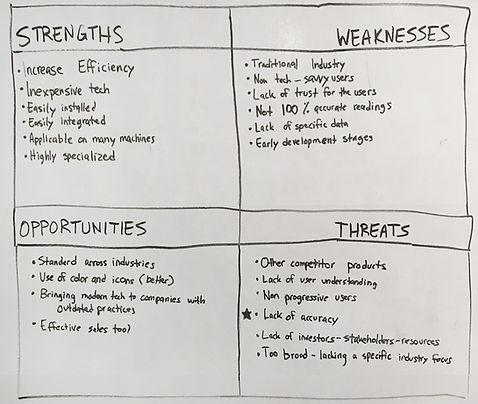 STRENGTHS
• Increase Efficiency
• Inexpensive tech
• Easily installed
• Easily integrated
• Applicable on many machines
• Highly specialized
WEAKNESSES
• Traditional Industry
• Non tech-savvy users
• Lack of trust for the users
• Not 100% accurate readings
• Lack of specific data
• Early development stages
OPPORTUNITIES
• Standard across industries
• Use of color and icons (better)
• Bringing modern tech to companies with
outdated practices
• Effective sales tool
THREATS
• Other competitor products
• Lack of user understanding
• Non progressive users
★ • Lack of accuracy
• Lack of investors-stakeholders-resources
• Too broad - lacking a specific industry focus